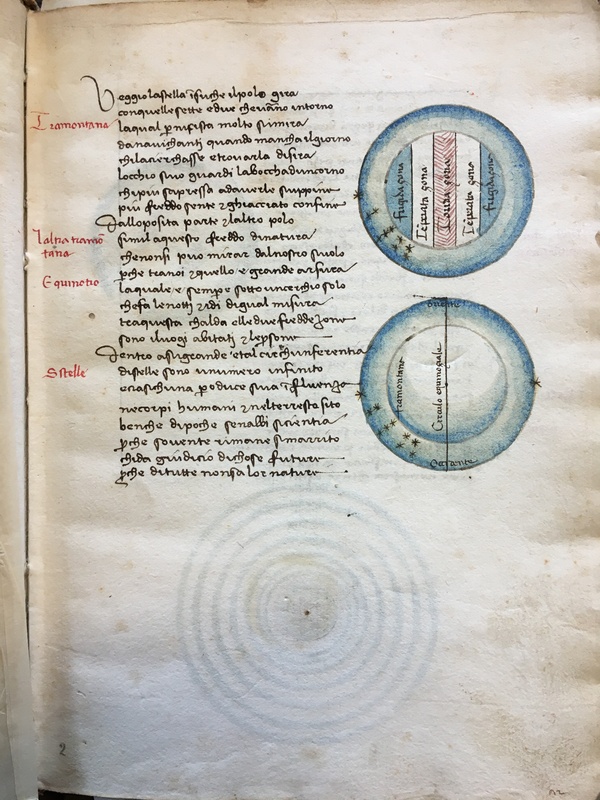 Veggio la stella ī su che il polo gira
con quelle sette e due che vāno intorno
Tramontana
la qual p nifista molto si mira
da navichanti quando mancha il giorno
chi lacierchasse e trovarla disira
locchio suo guardi la bocha du corno
chi piu sapressa ad averle
piu freddo sente z ghiacciato confine
Dall oposita parte z laltro polo
laltra tramō
tana
simil a questo freddo di natura
che non si puo mirar dal nostro suolo
pche tra noi z quello e grande arsura
Equinotio
la quale e sempre sotto un cerchio solo
che fa le notti z i di digual misura
tra questa chalda elle due fredde zone
sono i luogi abitati z le psone
Dentro a si grande et al circhūnferentia
Sstelle
di stelle sono un numero infinito
e ciaschuna pduce sua īfluenza
ne corpi humani z nel terresto sito
benche di poche senabbi scientia
pche sovente rimane smarrito
chi da giudicio di chose future
pche di tutte non sa lor nature
fugida zona
Tēpata zona
zona
Tēpata zona
fugida zona
oriente
tramontane
Circulo equinoziale
2